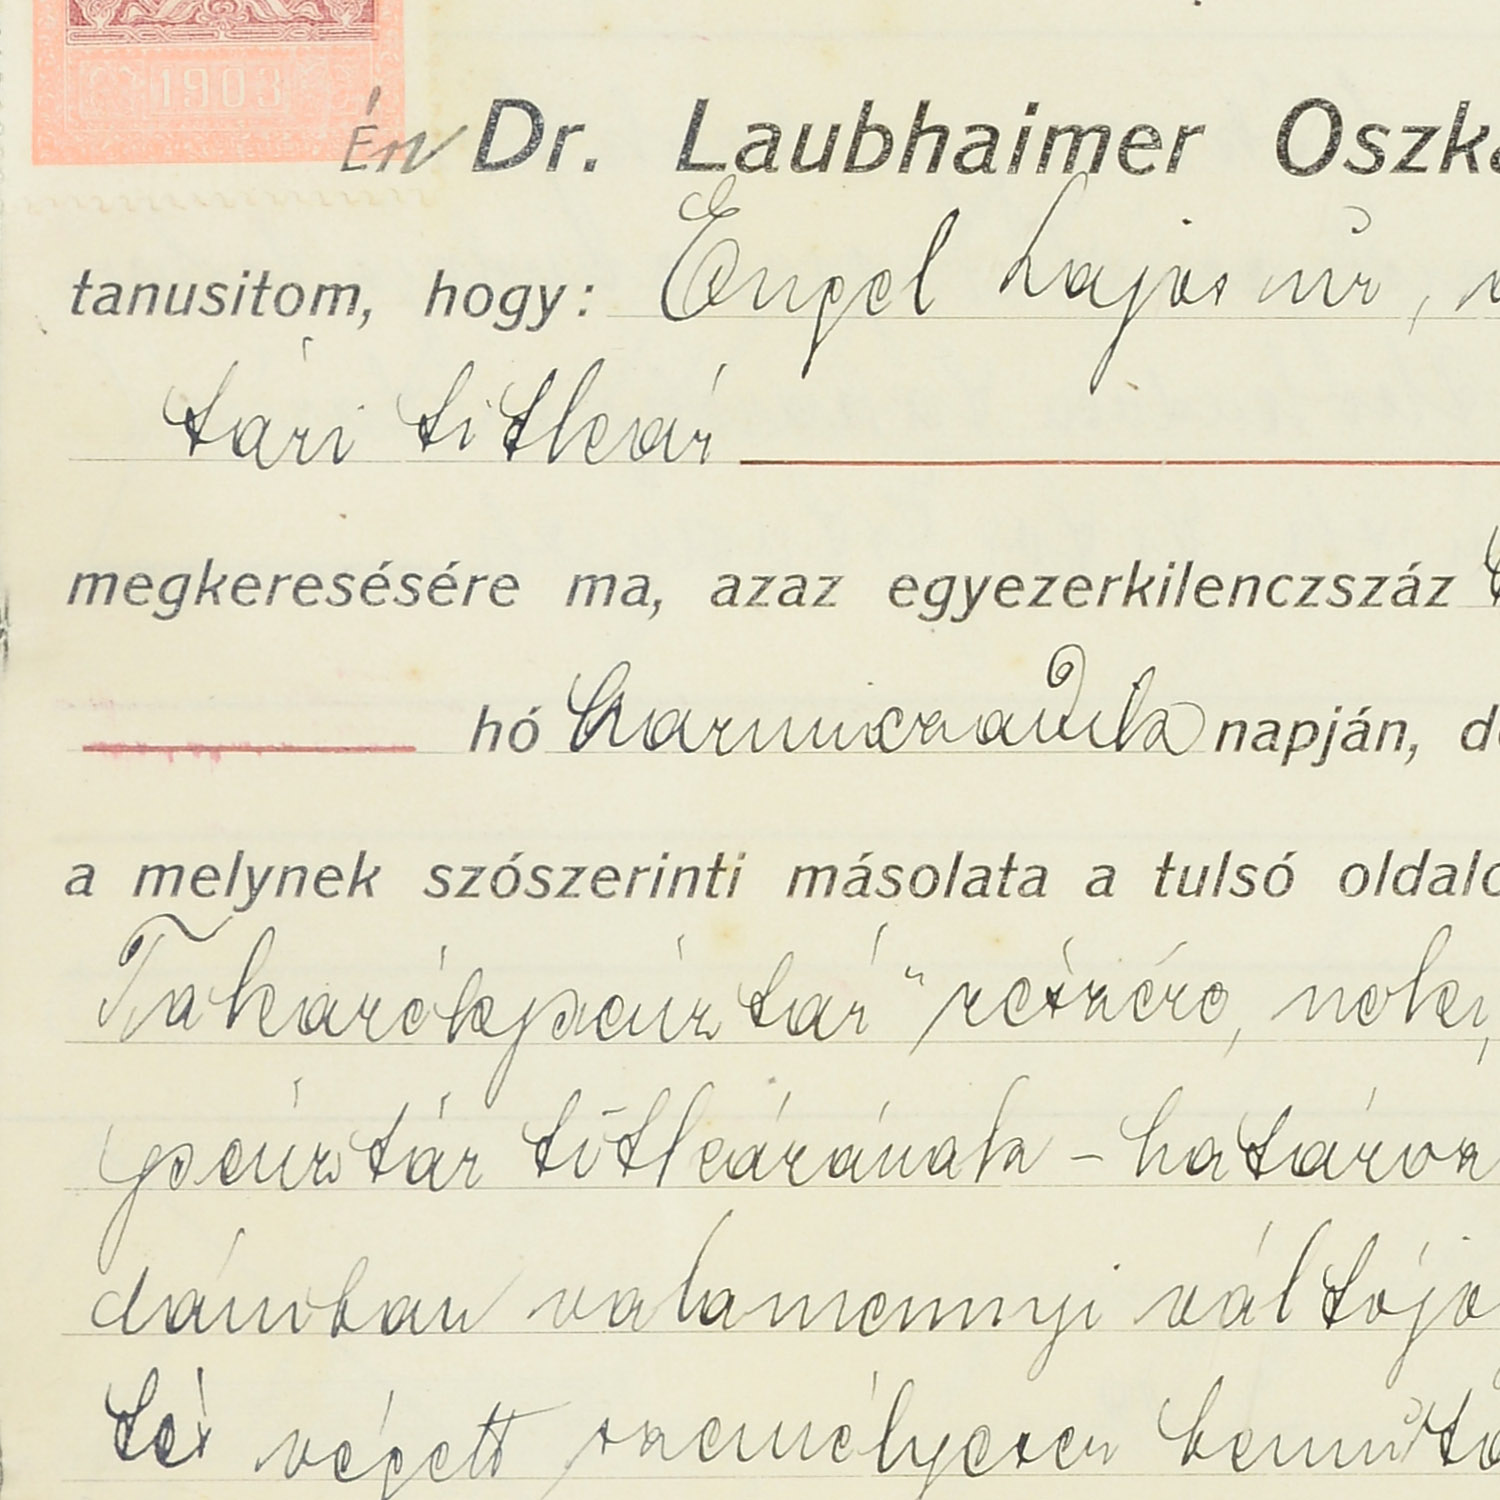 1903
Én Dr. Laubhaimer Oszká
tanusitom, hogy: Engel Lajos úr,
tári titkár
megkeresésére ma, azaz egyezerkilenczszáz
hó harminczadik napján, de
a melynek szószerinti másolata a tulsó oldalo
Takarékpénztár" részére, nekı,
pénztár titkárának - határoz
dámban valamennyi váltójo
tés végett személyesen bemuto